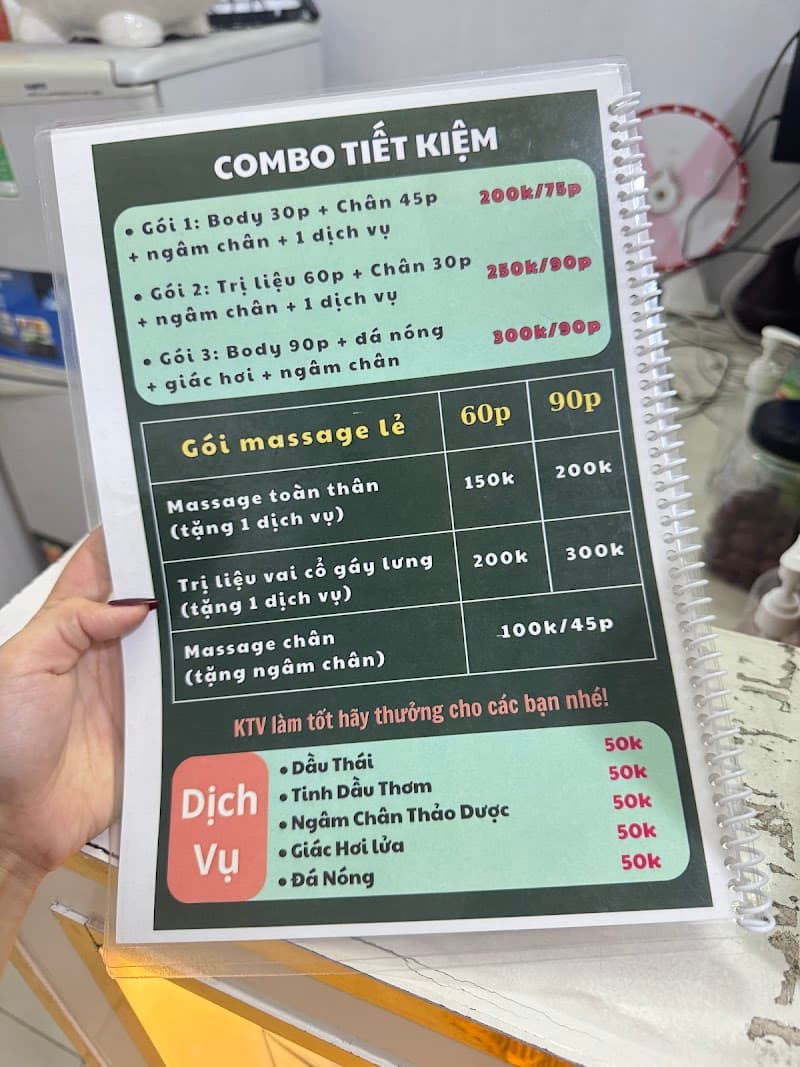 COMBO TIẾT KIỆM
• Gói 1: Body 30p + Chân 45p 200k/75p
+ ngâm chân + 1 dịch vụ
• Gói 2: Trị liệu 60p + Chân 30p 250k/90p
+ ngâm chân + 1 dịch vụ
• Gói 3: Body 90p + đá nóng 300k/90p
+ giác hơi + ngâm chân
Gói massage lẻ 60p 90p
Massage toàn thân 150k 200k
(tặng 1 dịch vụ)
Trị liệu vai cổ gáy lưng 200k 300k
(tặng 1 dịch vụ)
Massage chân 100k/45p
(tặng ngâm chân)
KTV làm tốt hãy thưởng cho các bạn nhé!
Dịch Vụ
• Dầu Thái 50k
• Tinh Dầu Thơm 50k
• Ngâm Chân Thảo Dược 50k
• Giác Hơi lửa 50k
• Đá Nóng 50k